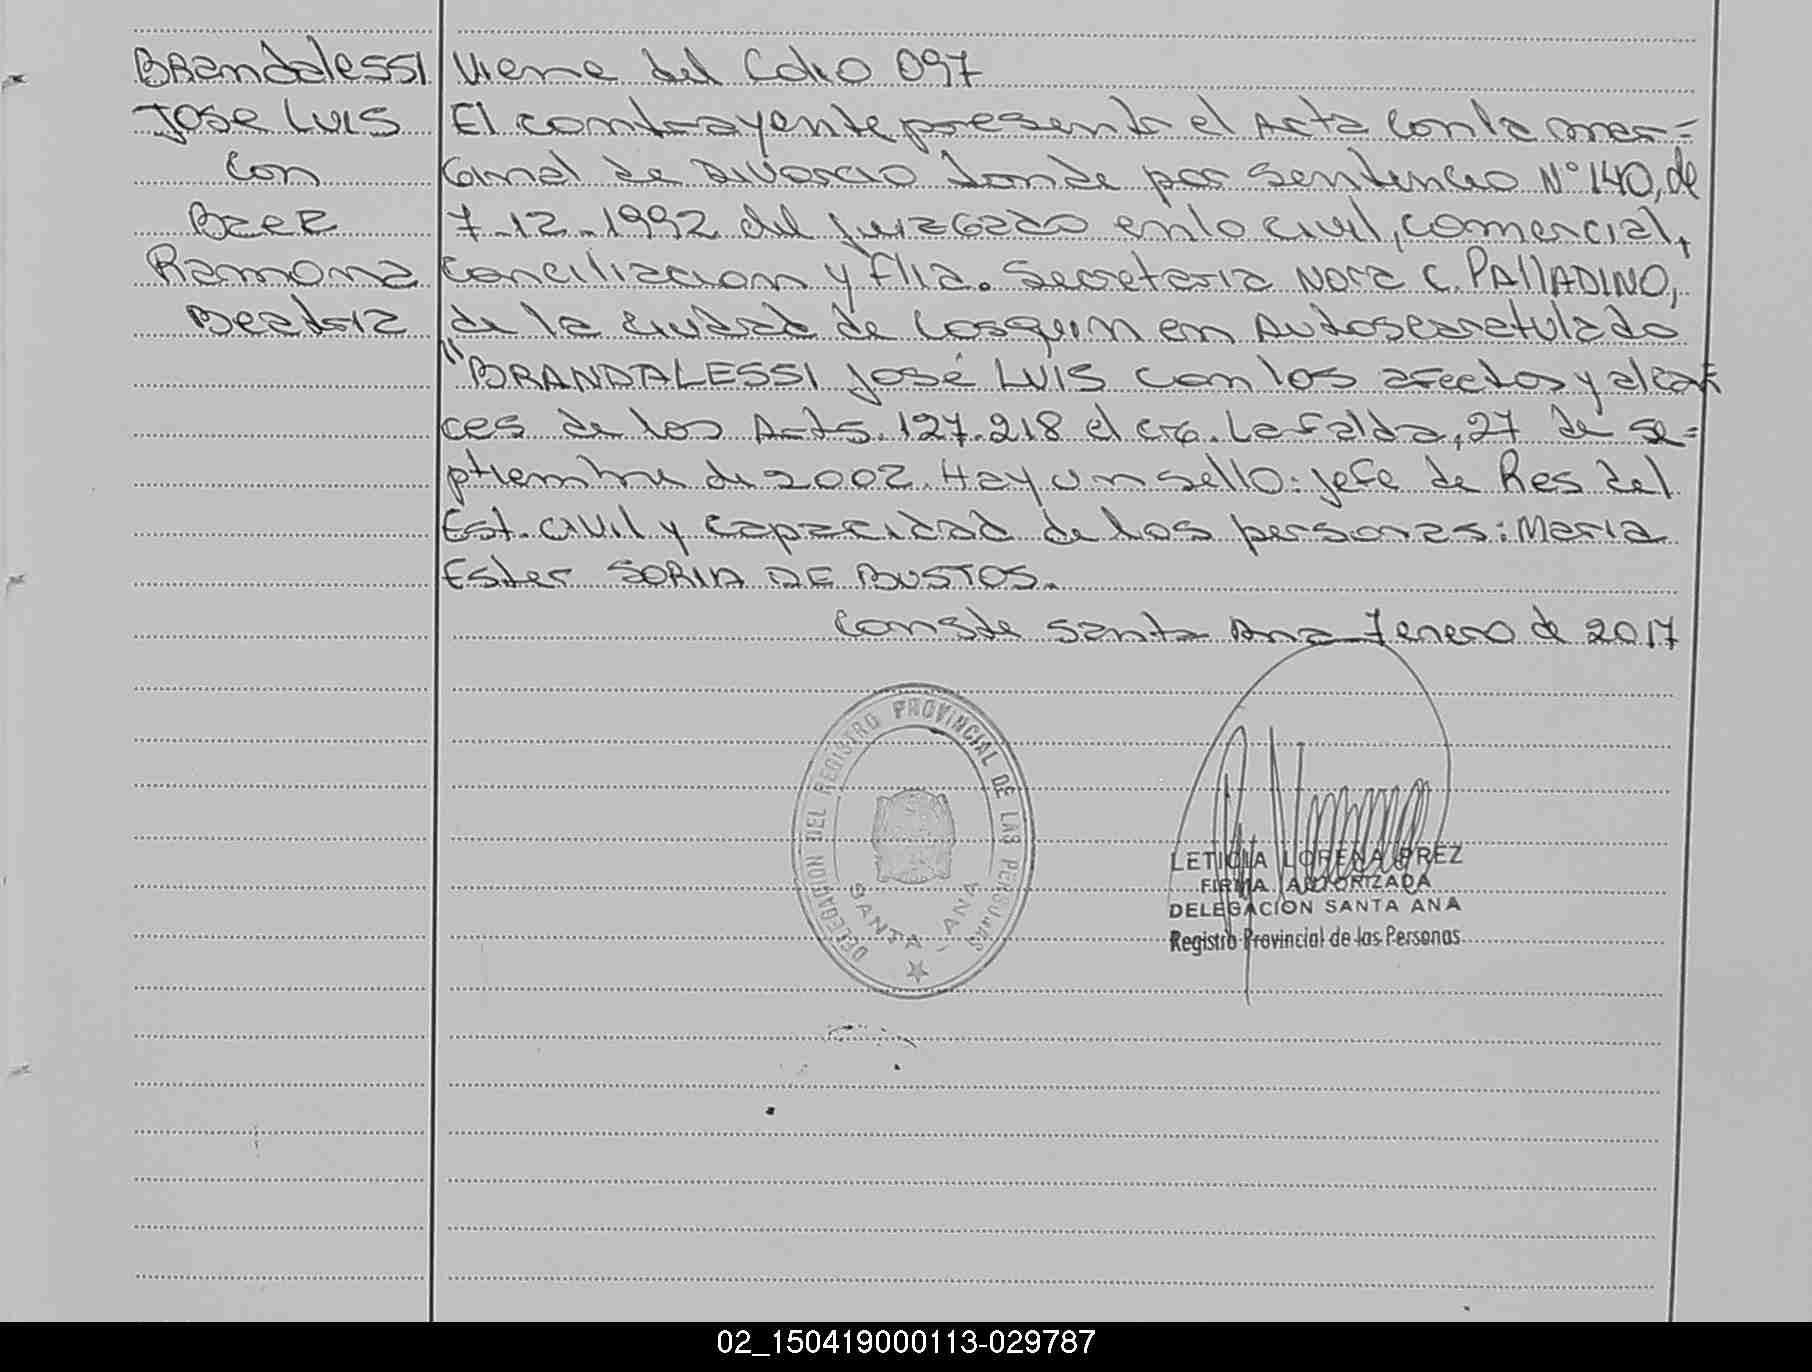 BRandalessi
Jose Luis
Con
Baez
Ramona
Beatriz
Viene del Folio 097
El contrayente presenta el Acta con la mar=
ginal de Divorcio donde por Sentencia N° 140, de
7-12-1992 del juzgado en lo civil, comercial,
Conciliacion y Flia. Secretaria Nora C. PAllADINO,
de la Ciudad de Cosquin en Autos caratulado
"BRANDALESSI José LUIS con los efectos y alcan
ces de los Arts. 127.218 el
La Falda, 27 de se=
ptiembre de 2002. Hay un sello: jefe de Res del
Est. Civil y Capacidad de las personas: Maria
Ester SORIA DE BUSTOS.
Conste Santa Ana 7 enero de 2017
DELEGACION DEL REGISTRO PROVINCIAL DE LAS PERSONAS
SANTA - ANA
LETICIA LORENA PREZ
FIRMA AUTORIZADA
DELEGACION SANTA ANA
Registro Provincial de las Personas
02_150419000113-029787